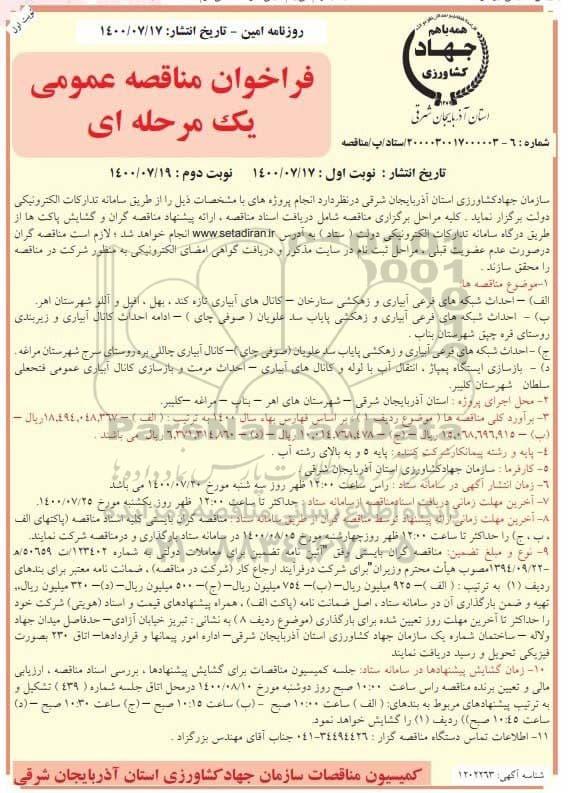 نوبت اول
روزنامه امین - تاریخ انتشار: ۱۴۰۰/۰۷/۱۷
همه با هم
جهاد
کشاورزی
استان آذربایجان شرقی
فراخوان مناقصه عمومی
یک مرحله ای
شماره : ۶ - ۲۰۰۰۰۳۰۰۱۷۰۰۰۰۰۳/ستاد/ب/مناقصه
تاریخ انتشار : نوبت اول : ۱۴۰۰/۰۷/۱۷ نوبت دوم : ۱۴۰۰/۰۷/۱۹
سازمان جهادکشاورزی استان آذربایجان شرقی درنظردارد انجام پروژه های با مشخصات ذیل را از طریق سامانه تدارکات الکترونیکی
دولت برگزار نماید . کلیه مراحل برگزاری مناقصه شامل دریافت اسناد مناقصه ، ارائه پیشنهاد مناقصه گران و گشایش پاکت ها از
طریق درگاه سامانه تدارکات الکترونیکی دولت ( ستاد ) به آدرس www.setadiran.ir انجام خواهد شد ؛ لازم است مناقصه گران
درصورت عدم عضویت قبلی ، مراحل ثبت نام در سایت مذکور و دریافت گواهی امضای الکترونیکی به منظور شرکت در مناقصه
را محقق سازند .
۱-موضوع مناقصه ها:
الف) – احداث شبکه های فرعی آبیاری و زهکشی ستارخان – کانال های آبیاری تازه کند ، بهل ، افیل و آللو شهرستان اهر.
ب) - احداث شبکه های فرعی آبیاری و زهکشی پایاب سد علویان ( صوفی چای ) – ادامه احداث کانال آبیاری و زیربندی
روستای قره چپق شهرستان بناب .
ج) - احداث شبکه های فرعی آبیاری و زهکشی پایاب سد علویان (صوفی چای)– کانال آبیاری چاللی بره روستای سرج شهرستان مراغه .
د) - بازسازی ایستگاه پمپاژ ، انتقال آب با لوله و کانال های آبیاری – احداث مرمت و بازسازی کانال آبیاری عمومی فتحعلی
سلطان شهرستان کلیبر.
۲- محل اجرای پروژه : استان آذربایجان شرقی – شهرستان های اهر – بناب – مراغه –کلیبر.
۳- برآورد کلی مناقصه ها ( موضوع ردیف ۱ ) بر اساس فهارس بهاء سال ۱۴۰۰ به ترتیب : ( الف ) – ۱۸,۴۹۴,۰۴۸,۳۶۷ریال –
(ب) – ۱۵,۰۶۸,۶۹۶,۹۱۵ ریال – (ج) – ۱۰,۰۱۴,۷۶۸,۴۷۸ ریال – (د) – ۶,۳۷۱,۳۱۴,۸۶۰ ریال، می باشند .
۴- پایه و رشته پیمانکارشرکت کننده : پایه ۵ و به بالای رشته آب .
۵- کارفرما : سازمان جهادکشاورزی استان آذربایجان شرقی
۶- زمان انتشار آگهی در سامانه ستاد : راس ساعت ۱۲:۰۰ ظهر روز سه شنبه مورخ ۱۴۰۰/۰۷/۲۰ می باشد
۷- آخرین مهلت زمانی دریافت اسنادمناقصه ازسامانه ستاد : حداکثر تا ساعت ۱۲:۰۰ ظهر روز یکشنبه مورخ ۱۴۰۰/۰۷/۲۵.
۸- آخرین مهلت زمانی ارائه پیشنهاد توسط مناقصه گران از طریق سامانه ستاد : مناقصه گران بایستی کلیه اسناد مناقصه (پاکتهای الف
، ب ، ج) را حداکثر تا ساعت ۱۲:۰۰ ظهر روزچهارشنبه مورخ ۱۴۰۰/۰۸/۰۵ در سامانه ستادبارگذاری و درمناقصه شرکت نمایند.
۹- نوع و مبلغ تضمین: مناقصه گران بایستی وفق "آئین نامه تضمین برای معاملات دولتی " به شماره ۱۲۳۴۰۲/ت ۵۰۶۵۹/ه
-۱۳۹۴/۰۹/۲۲مصوب هیأت محترم وزیران"برای شرکت درفرآیند ارجاع کار (شرکت در مناقصه) ، ضمانت نامه معتبر برای بندهای
ردیف (۱) به ترتیب : ( الف )– ۹۲۵ میلیون ریال–(ب)– ۷۵۴ میلیون ریال–(ج)– ۵۰۰ میلیون ریال–(د)– ۳۲۰ میلیون ریال،,
تهیه و ضمن بارگذاری آن در سامانه ستاد ، اصل ضمانت نامه (پاکت الف) ، همراه پیشنهادهای قیمت و اسناد (هویتی) شرکت خود
را حداکثر تا آخرین مهلت روز تعیین شده برای بارگذاری (موضوع ردیف ۸ ) به نشانی : تبریز خیابان آزادی– حدفاصل میدان جهاد
ولاله – ساختمان شماره یک سازمان جهاد کشاورزی استان آذربایجان شرقی– اداره امور پیمانها و قراردادها– اتاق ۲۳۰ بصورت
فیزیکی تحویل و رسید دریافت نمایند
۱۰- زمان گشایش پیشنهادها در سامانه ستاد: جلسه کمیسیون مناقصات برای گشایش پیشنهادها ، بررسی اسناد مناقصه ، ارزیابی
مالی و تعیین برنده مناقصه راس ساعت ۱۰:۰۰ صبح روز دوشنبه مورخ ۱۴۰۰/۰۸/۱۰ درمحل اتاق جلسه شماره ( ۴۳۹ ) تشکیل و
به ترتیب پیشنهادهای مربوط به بندهای: ( الف ) ساعت ۱۰:۰۰ صبح - (ب) ساعت ۱۰:۱۵ صبح – (ج) ساعت ۱۰:۳۰ صبح – (د)
ساعت ۱۰:۴۵ صبح)) ردیف (۱) را گشایش خواهد نمود.
۱۱- اطلاعات تماس دستگاه مناقصه گزار : ۳۴۴۹۴۴۲۶-۰۴۱ جناب آقای مهندس بزرگزاد .
شناسه آگهی: ۱۲۰۲۲۶۳
کمیسیون مناقصات سازمان جهادکشاورزی استان آذربایجان شرقی